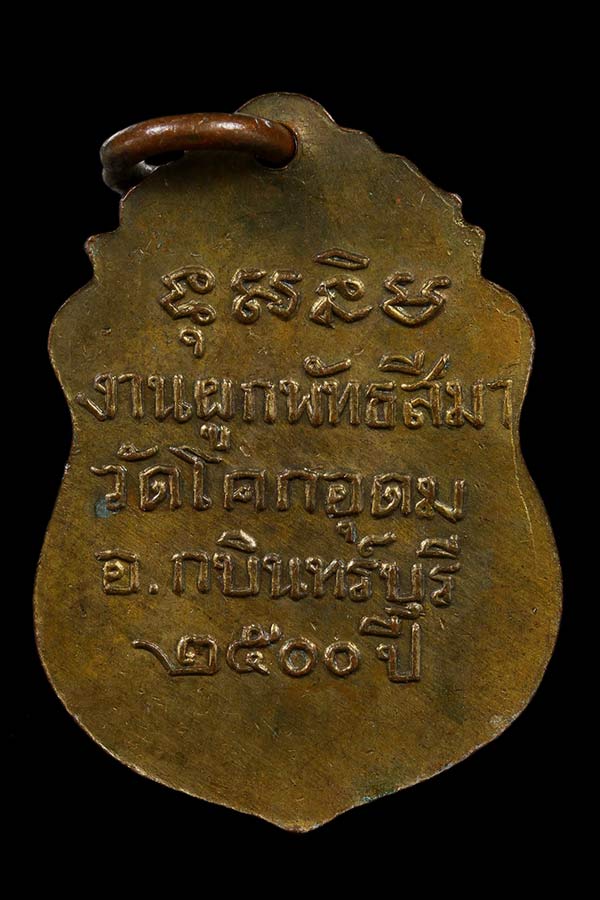 งานผูกพัทธสีมา
วัดโคกอุดม
อ.กบินทร์บุรี
๒๕๐๐ ปี